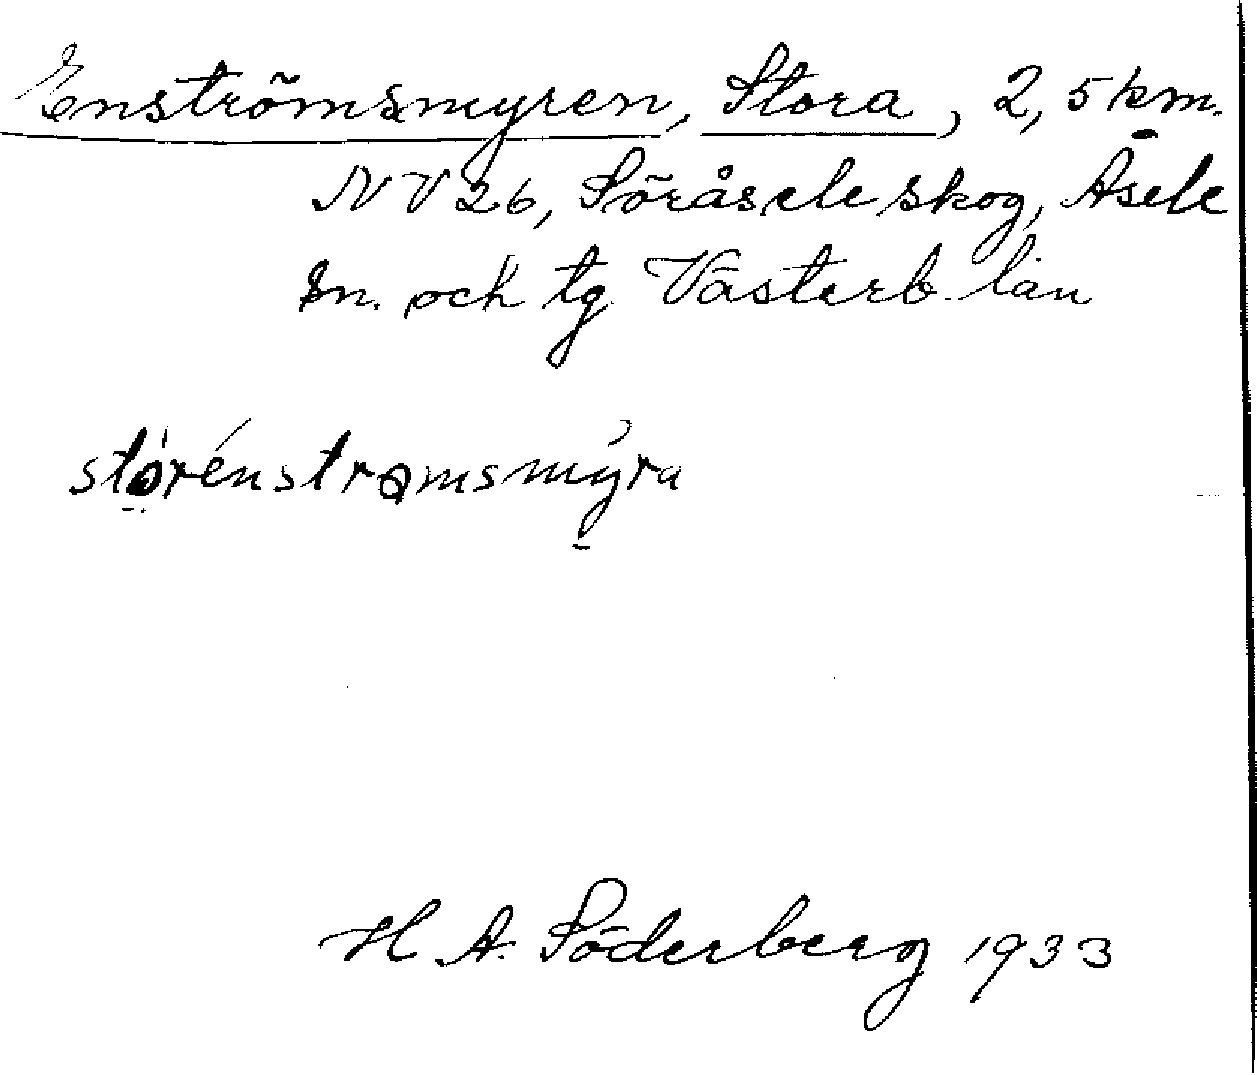 Enströmsmyren, Stora, 2,5 km.
NV 26, Söråsele skog, Åsele
sn. och tg Västerb. län
stórénstromsmýra
H. A. Söderberg 1933